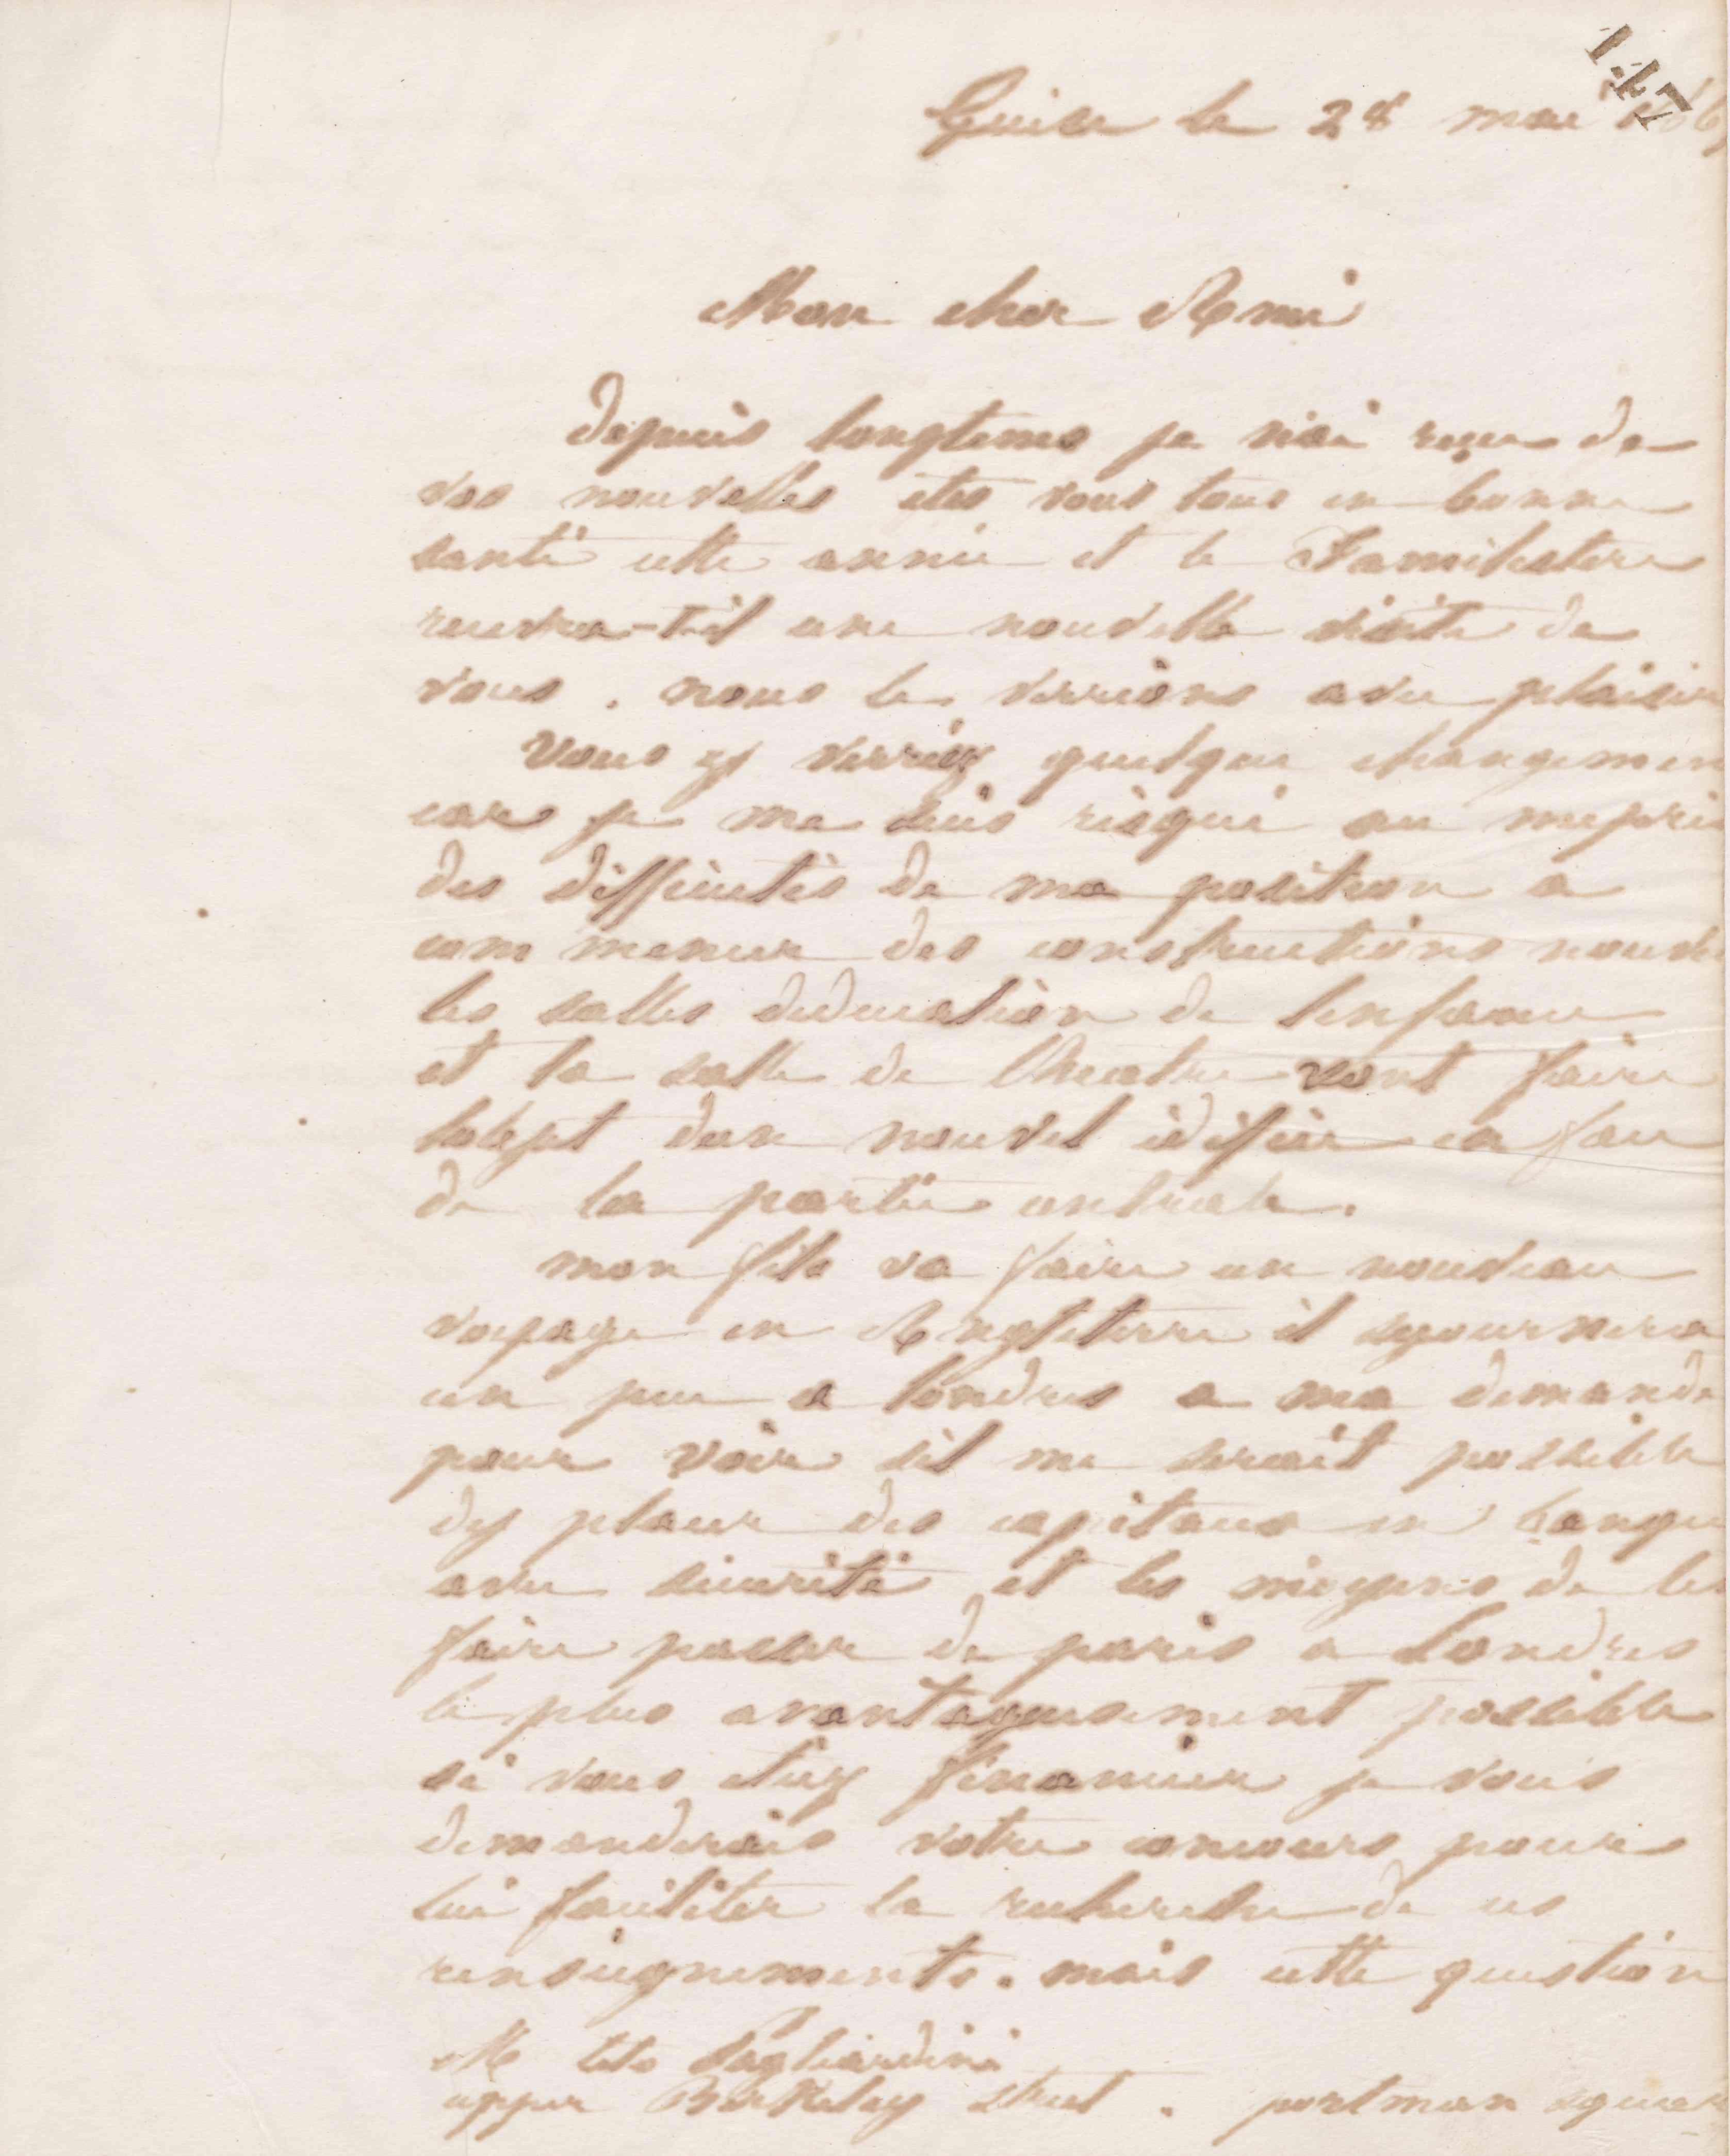 147
Guise le 28 mai 186
Mon cher Ami
Depuis longtems je n'ai reçu de
vos nouvelles etes vous tous en bonne
santé cette année et le Familistere
recevra-t-il une nouvelle visite de
vous . nous le verrions avec plaisir
Vous y verriez quelque changemen
car je me suis risqué au mepris
des difficultés de ma position a
commencer des constructions nouve
les salles deducation de lenfance
et la salle de theatre vont faire
lobjet dun nouvel édifice en face
de la partie centrale.
mon fils va faire un nouveau
voyage en Angleterre il sejournera
un peu a londres a ma demande
pour voir sil me serait possible
dy placer des capitaux en banque
avec sécurité et les moyens de les
faire passer de paris a Londres
le plus avantageusement possible
si vous étiez financier je vous
demanderais votre concours pour
lui faciliter la recherche de ces
renseignements. mais cette question
Mr tito Pagliardini
upper Berkeley street . portman square